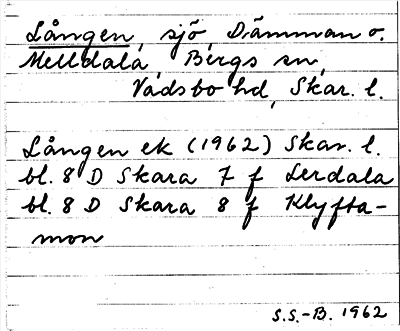 Lången, sjö, Dämman o.
Melldala, Bergs sn,
Vadsbo hd, Skar. l.
Lången ek (1962) Skar. l.
bl. 8 D Skara 7 f Lerdala
bl. 8 D Skara 8 f Klyfta-
mon
S.S.-B. 1962